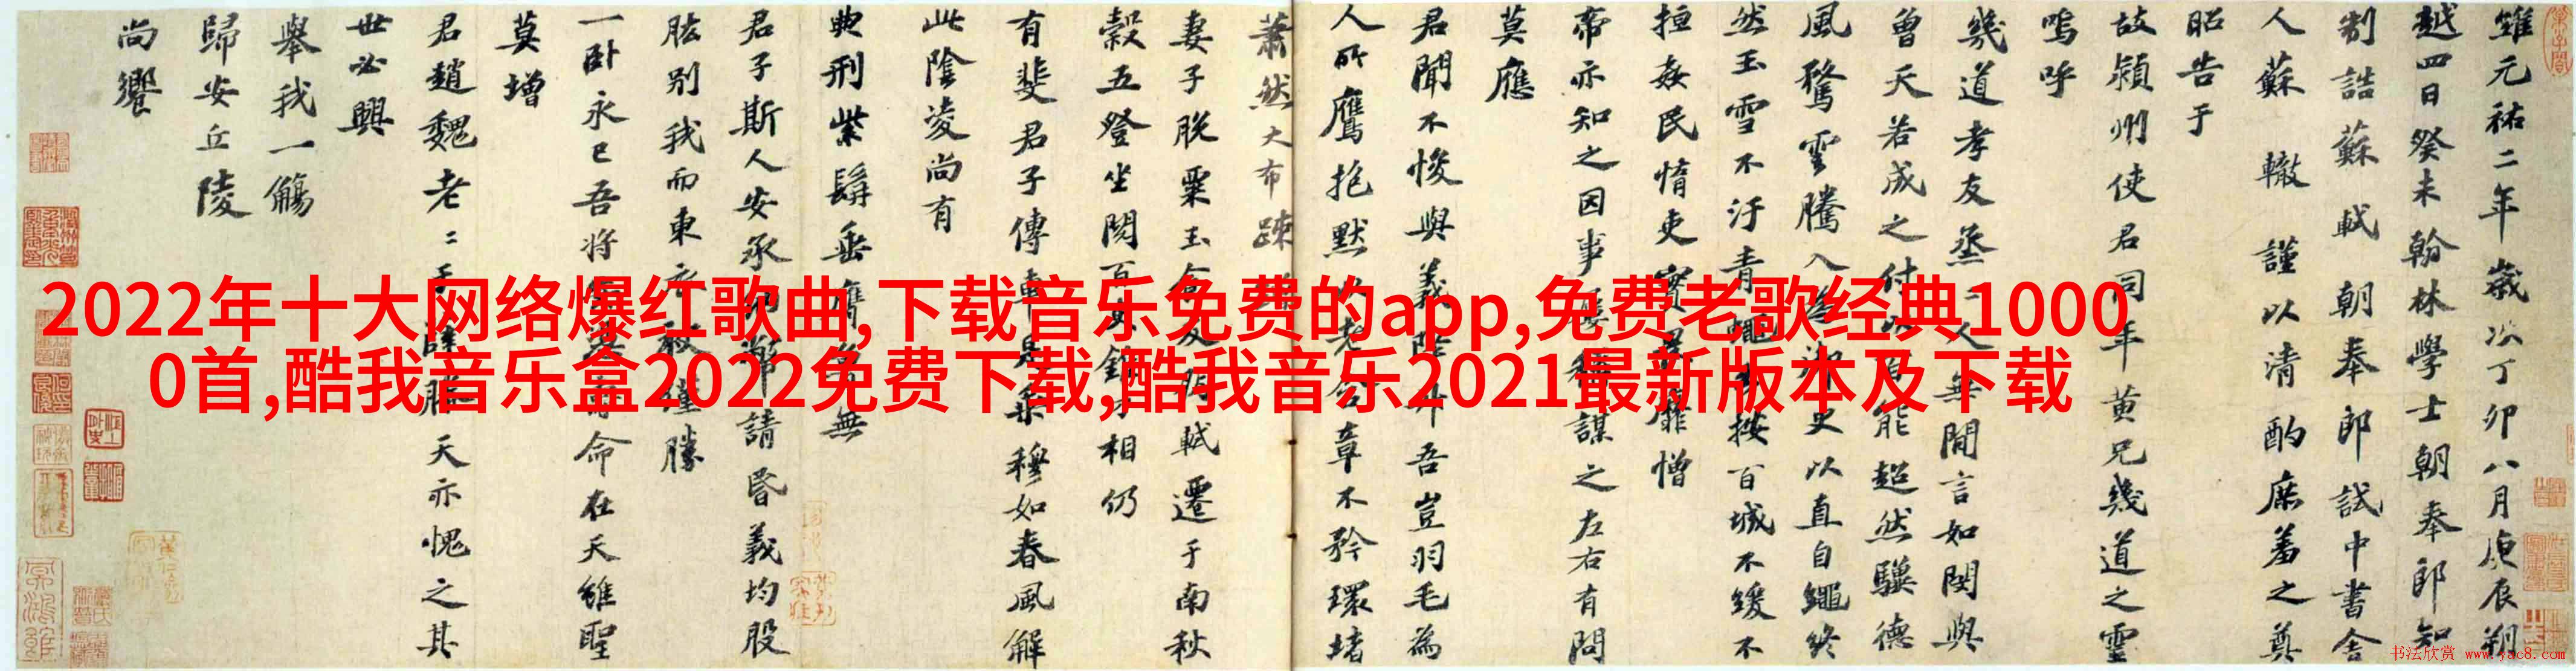 維元祐二年歲次丁卯八月庚辰朔
越四日癸未翰林學士朝奉郎知
制誥蘇軾朝奉郎試中書舍
人蘇轍謹以清酌庶羞之奠
昭告于
故潁州使君同年黄兄幾道之靈
嗚呼
幾道孝友烝〻人無間言如閔與
曾天若成之付以百能超然驥德
風騖雲騰入為御史以直自繩終
然玉雪不汙青蠅按百城不緩不
擅姦民惰吏實畏靡憎
帝亦知之因事屢稱謀之左右有問
莫應
君聞不悛與義降升吾豈羽毛為
人所鷹抱默以老含章不矜環堵
蕭然大布疎
妻子脱粟玉食及朋軾遷于南秋
穀五登坐閱百吏錐刀相仍
有斐君子傳車是乘穆如春風解
此陰凌尚有
典刑紫髯垂膺魯無
君子斯人安承納幣請昏義均股
肱别我而東衣袂僅勝
一卧永已吾將安馮壽命在天雖聖
莫增
君趙魏老〻于薛滕天亦愧之其
世必興
舉我一觴
歸安丘陵
尚饗
2022年十大网络爆红歌曲,下载音乐免费的app,免费老歌经典1000
0首,酷我音乐盒2022免费下载,酷我音乐2021最新版本及下载
书法欣赏 www.yac8.com